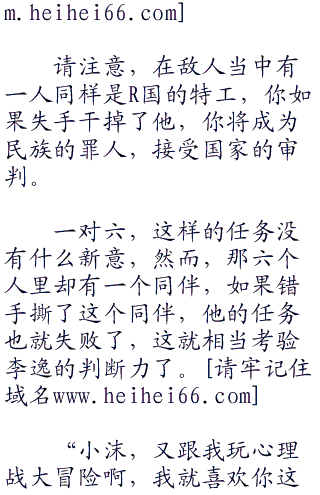 m.heihei66.com]
请注意，在敌人当中有
一人同样是R国的特工，你如
果失手干掉了他，你将成为
民族的罪人，接受国家的审
判。
一对六，这样的任务没
有什么新意，然而，那六个
人里却有一个同伴，如果错
手撕了这个同伴，他的任务
也就失败了，这就相当考验
李逸的判断力了。[请牢记住
域名www.heihei66.com]
“小沫，又跟我玩心理
战大冒险啊，我就喜欢你这